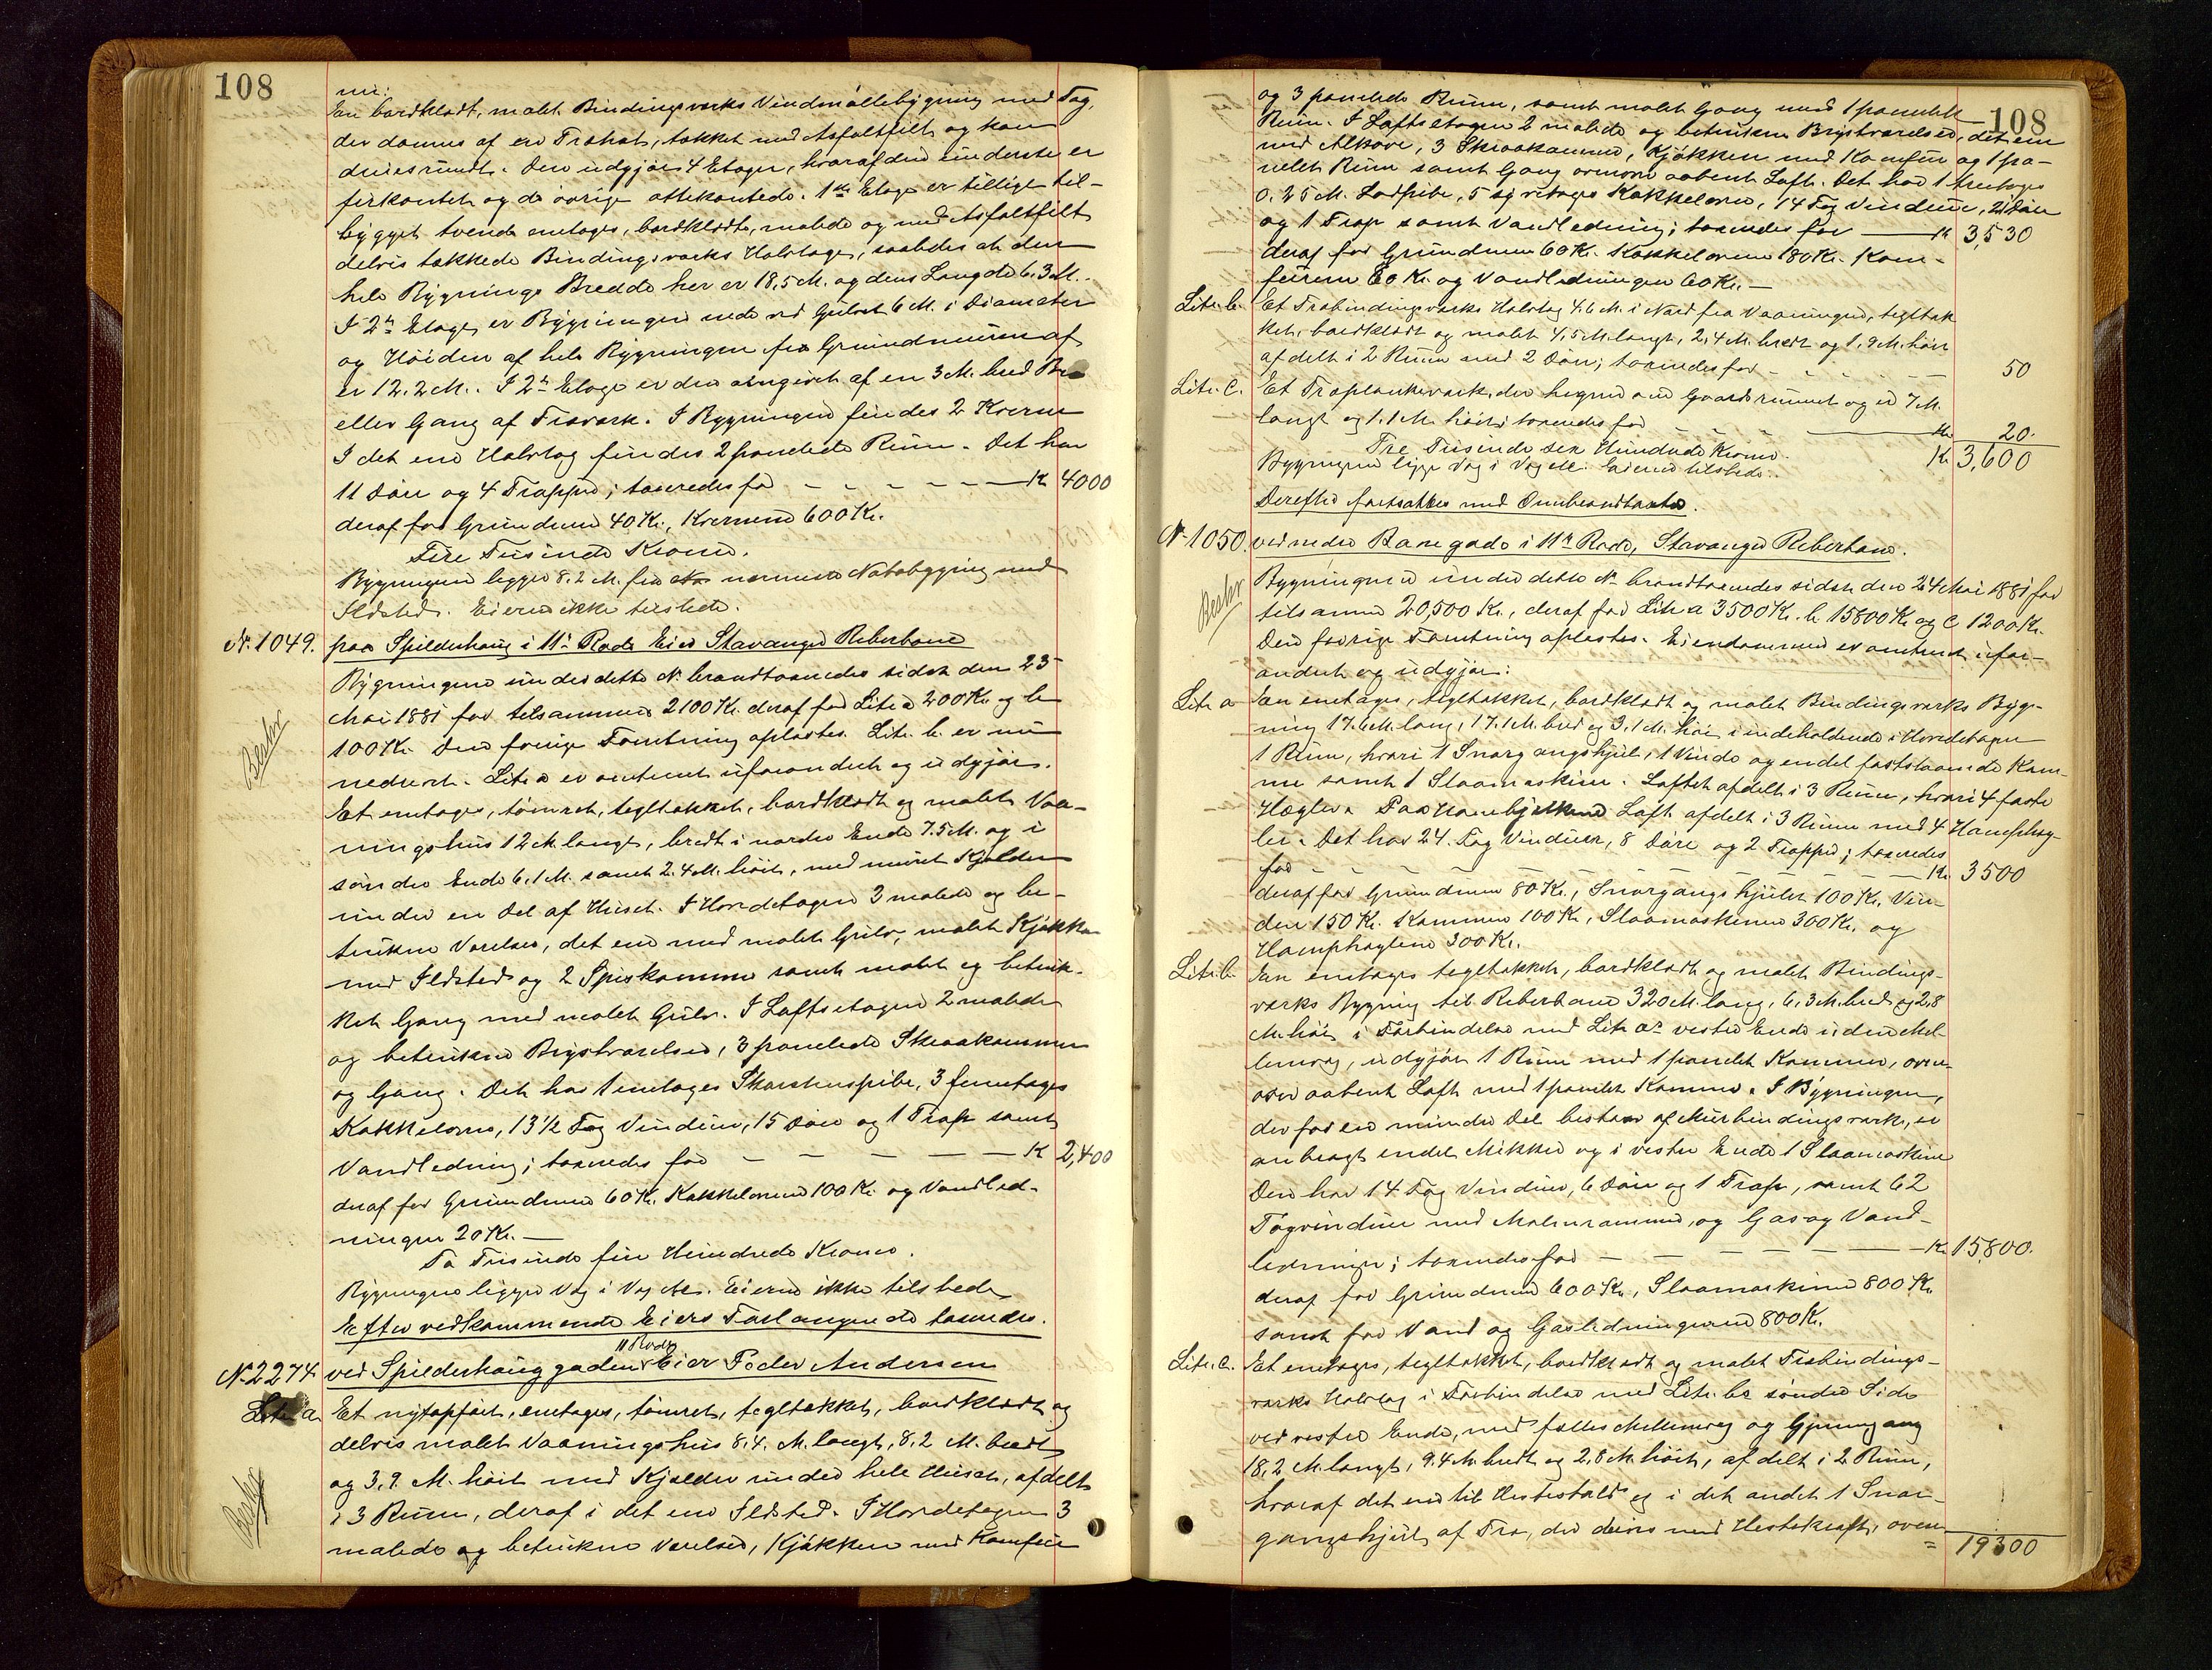 108
ne:
En bordklædt, malet Bindingsværks Vindmøllebygning med Tag,
der dannes af en Træhat, tækket med Asfaltfilt og kan
dreies rundt. Den udgjør 4 Etager, hvoraf den underste er
firkantet og de øvrige ottekantede. 1ste Etage er tillige til-
bygget tvende enetages, bordklædte, malede og med Asfaltfilt
delvis tækkede Bindingsværks Halvtage, saaledes at den
hele Bygnings Bredde her er 18,5 M. og dens Længde 6,3 M.
I 2n Etage er Bygningen nede ved Gulvet 6 M. i Diameter
og Høiden af hele Bygningen fra Grundmuren af
er 12.2 M. I 2n Etage er den omgivet af en 3 M. bred Bro
eller Gang af Træværk. I Bygningen findes 2 Kverne
I det ene Halvtag findes 2 panelede Rum. Det har
11 Døre og 4 Trapper; taxeredes for — Kr 4000
deraf for Grundmur 40 Kr., Kvernene 600 Kr.
Fire Tusinde Kroner.
Bygningen ligger 8.2 M. fra nærmeste Nabobygning med
Ildsted. Eieren ikke tilstede.
No. 1049. paa Spilderhaug i 11te Rode Eier Stavanger Reberbane
Bygningerne under dette No. brandtaxeredes sidst den 23
Mai 1881 for tilsammen 2100 Kr. deraf for Litr a 2000 Kr og b
100 Kr. Den forrige Forretning oplæstes. Litr. b. er nu
nedrevet. Litr a er omtrent uforandret og udgjør.
Et enetages, tømret, tegltækket, bordklædt og malet Vaa-
ningshus 12 M. langt, bredt i nordre Ende 7.5 M. og i
søndre Ende 6.1 M. samt 2.4 M. høit, med muret Kjælder
under en Del af Huset. I Hovedetagen 3 malede og be-
trukne Værelser, det ene med malet Gulv, malet Kjøkken
med Ildsted og 2 Spiskammere samt malet og betruk-
ket Gang med malet Gulv. I Loftsetagen 2 malede
og betrukne Brystværelser, 3 panelede Skraakammere
og Gang. Det har 1 enetages Skorstenspibe, 3 fleretages
Kakkelovne, 13 1/2 Fag Vinduer, 15 Døre og 1 Trap samt
Vandledning; taxeredes for — Kr 2,400
deraf for Grundmur 60 Kr. Kakkelovnene 100 Kr. og Vandled-
ningen 20 Kr. —
To Tusinde fire Hundrede Kroner.
Bygningen ligger Væg i Væg &c. Eieren ikke tilstede
Efter vedkommende Eiers Forlangende taxeredes.
No. 2274. ved Spilderhauggaden 11 Rode Eier Peder Andersen
Litr a. Et nyopført, enetages, tømret, tegltækket, bordklædt og
delvis malet Vaaningshus 8.4. M. langt, 8.2 M. bredt
og 3,9. M. høit med Kjælder under hele Huset, afdelt
i 3 Rum, deraf i det ene Ildsted. I Hovedetagen 3
malede og betrukne Værelser, Kjøkken med Komfur
108
og 3 panelede Rum, samt malet Gang med 1 panelet
Rum. I Loftsetagen 2 malede og betrukne Brystværelser, det ene
med Alkove, 3 Skraakammere, Kjøkken med Komfur og 1 pa-
nelet Rum samt Gang ovenover aabent Loft. Det har 1 treetages
0.25 M. Ladpibe, 5 Kakkelovne, 14 Fag Vinduer, 21 Døre
og 1 Trap samt Vandledning; taxeredes for — Kr 3,530
deraf for Grundmur 60 Kr. Kakkelovne 180 Kr. Kom-
furene 60 Kr. og Vandledningen 60 Kr. —
Litr. b. Et Træbindingsværks Halvtag 4.6 M. i Nord fra Vaaningen, tegltæk
ket, bordklædt og malet 4,5 M. langt, 2,4 M. bredt og 1.9 M. høit
afdelt i 2 Rum med 2 Døre; taxeredes for — 50
Litr. c. Et Træplankeværk, der hegner om Gaardsrummet og er 7 M.
langt og 1.1 M. høit; taxeredes for — Kr. 20.
Tre Tusinde sex Hundrede Kroner. Kr 3,600
Bygningen ligger Væg i Væg &c. Eieren tilstede.
Derefter fortsattes med Ombrandtaxter.
No. 1050. ved nedre Banegade i 11te Rode, Stavanger Reberbane.
Bygningerne under dette No. brandtaxeredes sidst den 24 Mai 1881 for
tilsammen 20,500 Kr., deraf for Litr a 3500 Kr. b. 15800 Kr og c 1200 Kr.
Den forrige Forretning oplæstes. Eiendommen er omtrent ufor-
andret og udgjør:
Litr a En enetages, tegltækket, bordklædt og malet Bindingsværks Byg-
ning 17.6 M. lang, 17.1 M. bred og 3,1 M. høi, indeholdende i Hovedetagen
1 Rum, hvori 1 Snorgangshjul, 1 Vinde og endel fastslaaende Kam-
me samt 1 Slaamaskine. Loftet afdelt i 3 Rum, hvori 4 faste
Hægler. Paa Hanebjelkene Loft afdelt i 3 Rum med 4 Hamphæg-
ler. Det har 24. Fag Vinduer, 8 Døre og 2 Trapper; taxeredes
for — Kr. 3500
deraf for Grundmur 80 Kr., Snorgangshjulet 100 Kr. Vin-
den 150 Kr. Kammene 100 Kr., Slaamaskinen 300 Kr. og
Hamphæglerne 300 Kr.
Litr. b. En enetages tegltækket, bordklædt og malet Bindings-
værks Bygning til Reberbane 320 M. lang, 6,3 M. bred og 2,8
M. høi i Forbindelse med Litr as vestre Ende uden Mel-
lemvæg, udgjør 1 Rum med 1 panelet Kammer, oven-
over aabent Loft med 1 panelet Kammer. I Bygningen,
der for en mindre Del bestaar af Murbindingsværk, er
anbragt endel Mikker og i vestre Ende 1 Slaamaskine
Den har 14 Fag Vinduer, 6 Døre og 1 Trap, samt 62
Tagvinduer med Malmrammer, og Gas og Vand-
ledninger; taxeredes for — Kr. 15,800.
deraf for Grundmur 600 Kr., Slaamaskinen 800 Kr.
samt for Vand og Gasledningerne 800 Kr.
Litr. c. Et enetages, tegltækket, bordklædt og malet Træbindings-
værks Halvtag i Forbindelse med Litr. bs søndre Side
ved vestre Ende, med fælles Mellemvæg og Gjennemgang
18,2 M. langt, 9.4 M. bredt og 2,8 M. høit, afdelt i 2 Rum,
hvoraf det ene til Hestestald og i det andet 1 Snor-
gangshjul af Træ, der drives med Hestekraft, oven
= 19300